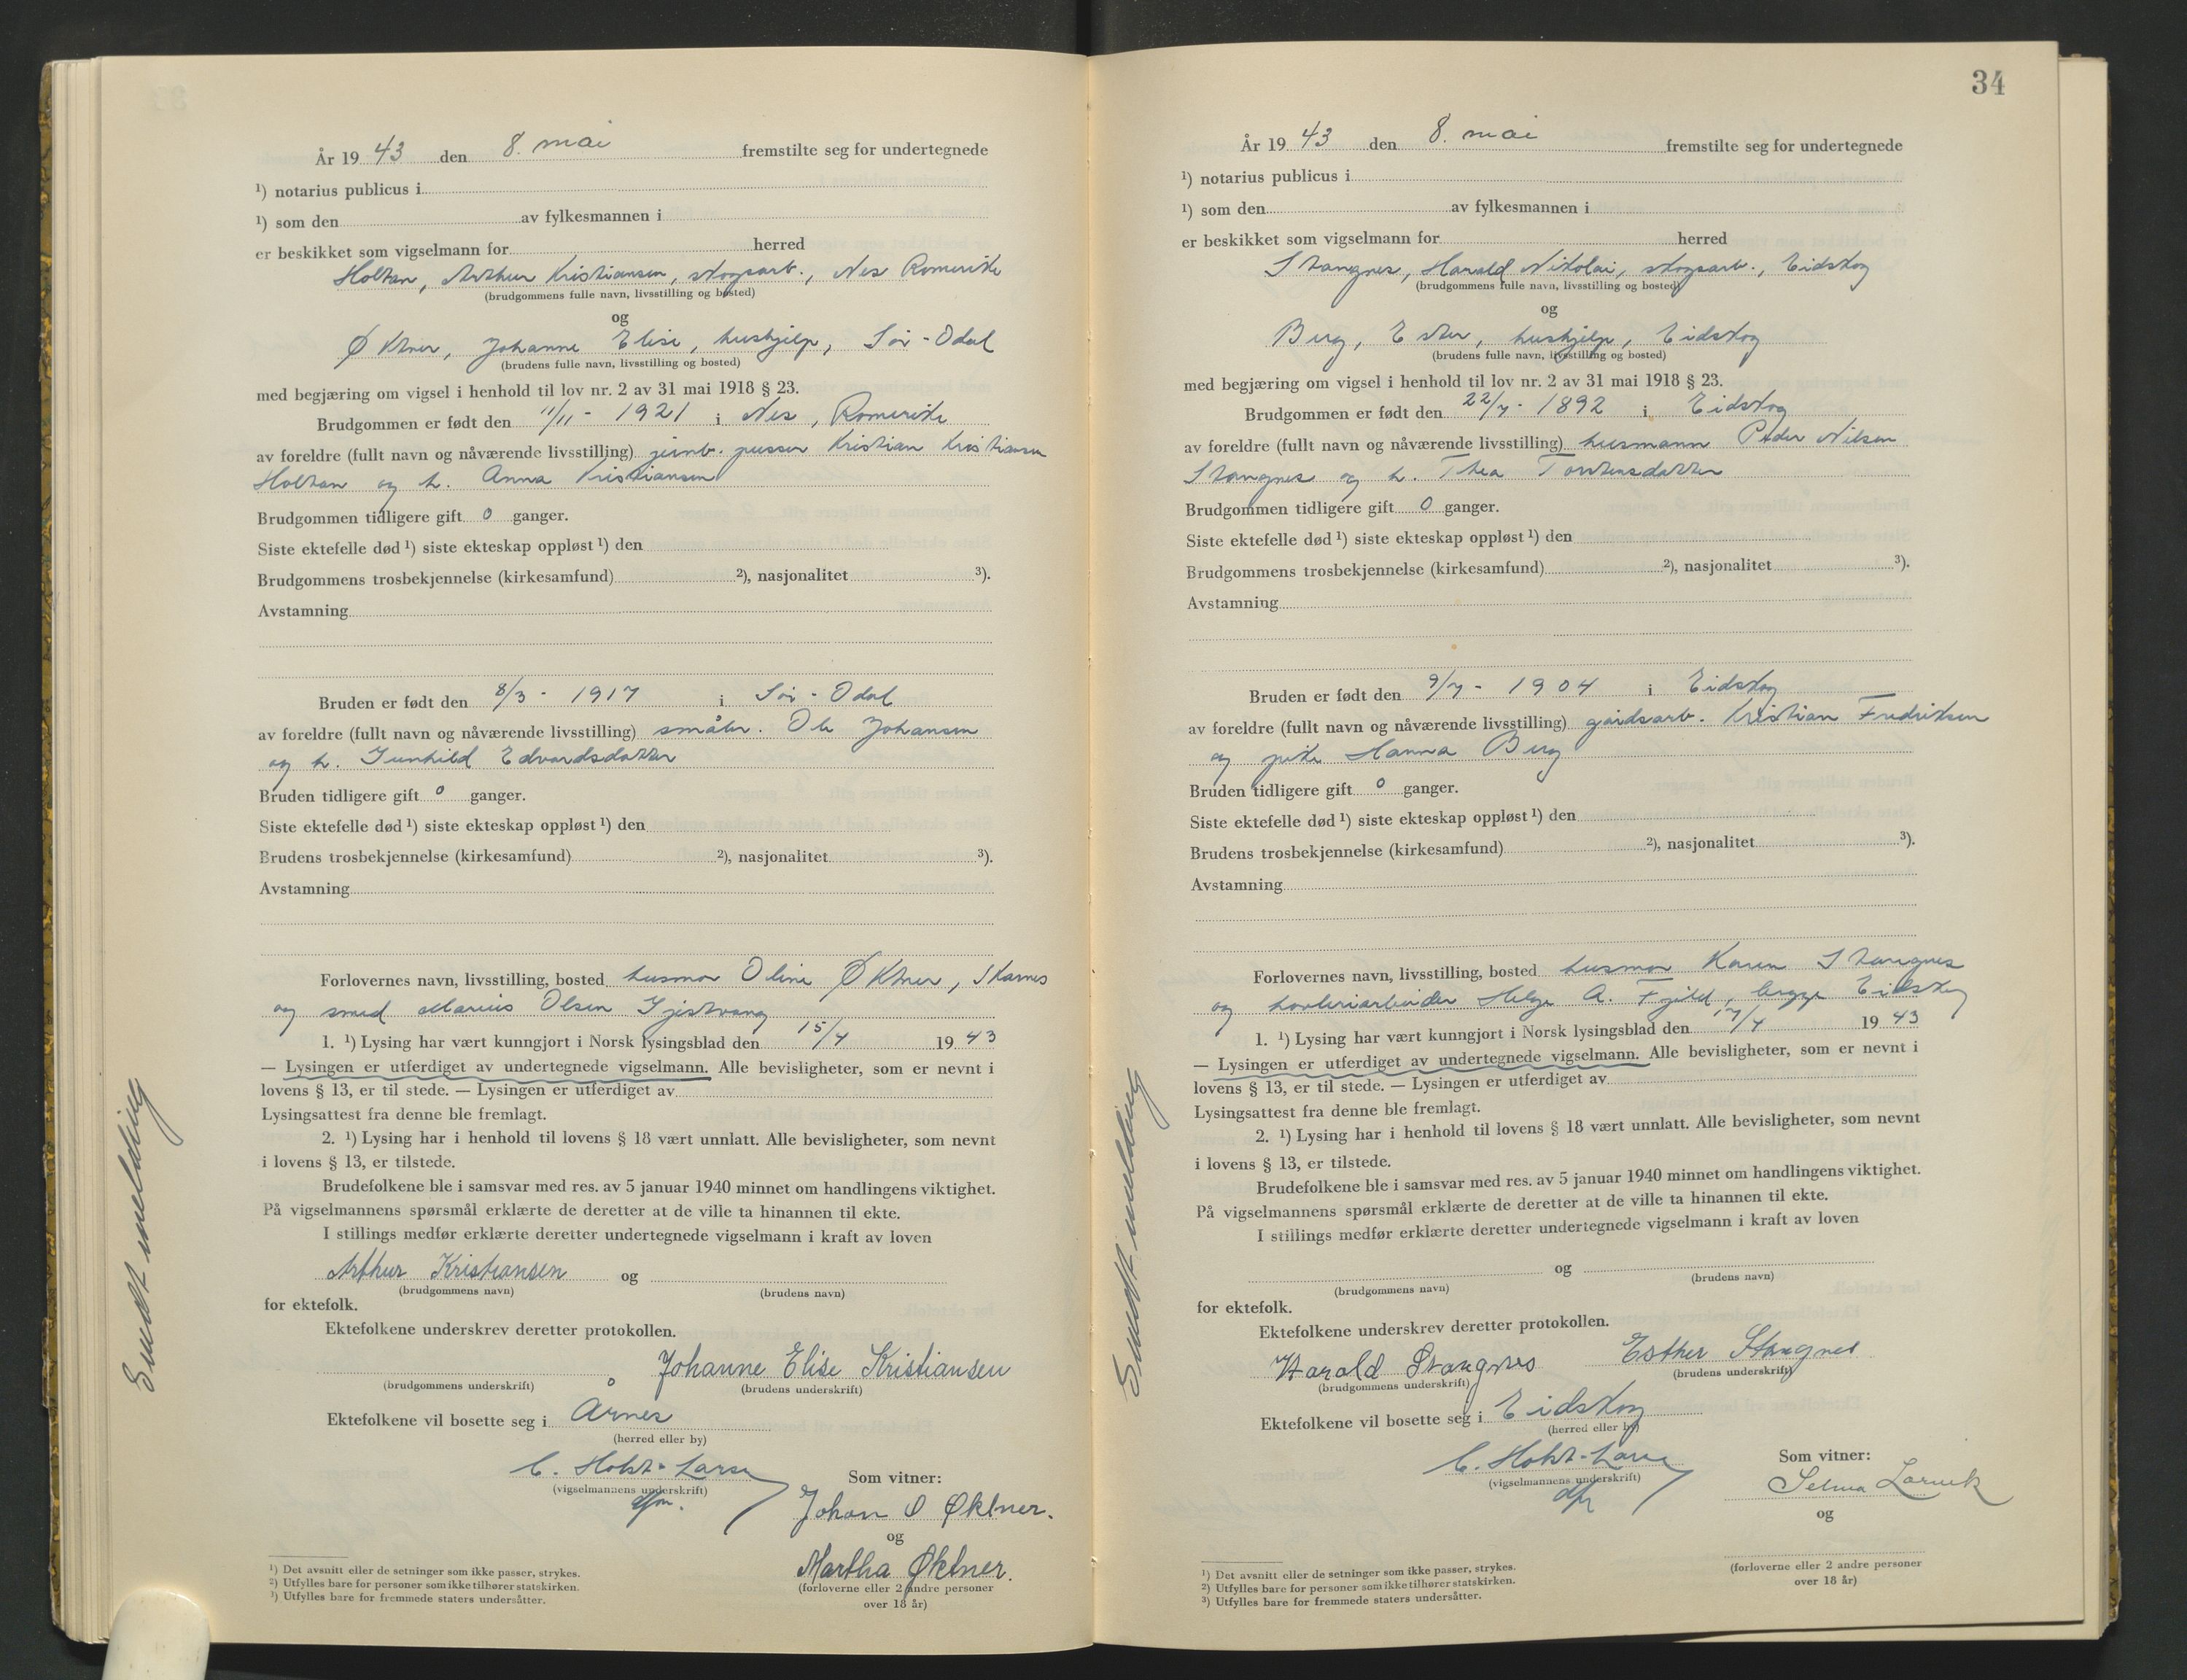 År 19 43 den 8. mai fremstilte seg for undertegnede
¹) notarius publicus i
¹) som den av fylkesmannen i
er beskikket som vigselmann for herred
Holtan, Arthur Kristiansen, skogsarb., Nes Romerike
(brudgommens fulle navn, livsstilling og bosted)
og
Øktner, Johanne Elise, hushjelp, Sør-Odal
(brudens fulle navn, livsstilling og bosted)
med begjæring om vigsel i henhold til lov nr. 2 av 31 mai 1918 § 23.
Brudgommen er født den 11/11 - 1921 i Nes, Romerike
av foreldre (fullt navn og nåværende livsstilling) jernb. pusser Kristian Kristiansen
Holtan og h. Anna Kristiansen
Brudgommen tidligere gift 0 ganger.
Siste ektefelle død ¹) siste ekteskap oppløst ¹) den
Brudgommens trosbekjennelse (kirkesamfund) ²), nasjonalitet ³).
Avstamning
Bruden er født den 8/3 - 1917 i Sør-Odal
av foreldre (fullt navn og nåværende livsstilling) småbr. Ole Johansen
og h. Gunhild Edvardsdatter
Bruden tidligere gift 0 ganger.
Siste ektefelle død ¹) siste ekteskap oppløst ¹) den
Brudens trosbekjennelse (kirkesamfund) ²), nasjonalitet ³).
Avstamning
Forlovernes navn, livsstilling, bosted husmor Oline Øktner, Skarnes
og smed Marius Olsen
1. ¹) Lysing har vært kunngjort i Norsk lysingsblad den 15/4 19 43
— Lysingen er utferdiget av undertegnede vigselmann. Alle bevisligheter, som er nevnt i
lovens § 13, er til stede. — Lysingen er utferdiget av
Lysingsattest fra denne ble fremlagt.
2. ¹) Lysing har i henhold til lovens § 18 vært unnlatt. Alle bevisligheter, som nevnt
i lovens § 13, er tilstede.
Brudefolkene ble i samsvar med res. av 5 januar 1940 minnet om handlingens viktighet.
På vigselmannens spørsmål erklærte de deretter at de ville ta hinannen til ekte.
I stillings medfør erklærte deretter undertegnede vigselmann i kraft av loven
Arthur Kristiansen og
(brudgommens navn) (brudens navn)
for ektefolk.
Ektefolkene underskrev deretter protokollen.
Johanne Elise Kristiansen
(brudgommens underskrift) (brudens underskrift)
Ektefolkene vil bosette seg i Årnes
(herred eller by)
C. Holst-Larsen
(vigselmannens underskrift)
dfm.
Som vitner:
Johan O Øktner.
og
Martha Øktner.
(forloverne eller 2 andre personer
over 18 år)
¹) Det avsnitt eller de setninger som ikke passer, strykes.
²) Utfylles bare for personer som ikke tilhører statskirken.
³) Utfylles bare for fremmede staters undersåtter.
Sendt melding
34
År 19 43 den 8. mai fremstilte seg for undertegnede
¹) notarius publicus i
¹) som den av fylkesmannen i
er beskikket som vigselmann for herred
Stangnes, Harald Nikolai, skogsarb., Eidskog
(brudgommens fulle navn, livsstilling og bosted)
og
Berg, Ester, hushjelp, Eidskog
(brudens fulle navn, livsstilling og bosted)
med begjæring om vigsel i henhold til lov nr. 2 av 31 mai 1918 § 23.
Brudgommen er født den 22/7 - 1892 i Eidskog
av foreldre (fullt navn og nåværende livsstilling) husmann Peder Nilsen
Stangnes og h. Thea Torstensdatter
Brudgommen tidligere gift 0 ganger.
Siste ektefelle død ¹) siste ekteskap oppløst ¹) den
Brudgommens trosbekjennelse (kirkesamfund) ²), nasjonalitet ³).
Avstamning
Bruden er født den 9/7 - 1904 i Eidskog
av foreldre (fullt navn og nåværende livsstilling) gårdsarb. Kristian Fredriksen
og pike Hanna Berg
Bruden tidligere gift 0 ganger.
Siste ektefelle død ¹) siste ekteskap oppløst ¹) den
Brudens trosbekjennelse (kirkesamfund) ²), nasjonalitet ³).
Avstamning
Forlovernes navn, livsstilling, bosted husmor Karen Stangnes
og høvleriarbeider Helge A. Fjeld, begge Eidskog
1. ¹) Lysing har vært kunngjort i Norsk lysingsblad den 17/4 19 43
— Lysingen er utferdiget av undertegnede vigselmann. Alle bevisligheter, som er nevnt i
lovens § 13, er til stede. — Lysingen er utferdiget av
Lysingsattest fra denne ble fremlagt.
2. ¹) Lysing har i henhold til lovens § 18 vært unnlatt. Alle bevisligheter, som nevnt
i lovens § 13, er tilstede.
Brudefolkene ble i samsvar med res. av 5 januar 1940 minnet om handlingens viktighet.
På vigselmannens spørsmål erklærte de deretter at de ville ta hinannen til ekte.
I stillings medfør erklærte deretter undertegnede vigselmann i kraft av loven
og
(brudgommens navn) (brudens navn)
for ektefolk.
Ektefolkene underskrev deretter protokollen.
Harald Stangnes Esther Stangnes
(brudgommens underskrift) (brudens underskrift)
Ektefolkene vil bosette seg i Eidskog
(herred eller by)
C. Holst-Larsen
(vigselmannens underskrift)
dfm
Som vitner:
Selma
og
(forloverne eller 2 andre personer
over 18 år)
¹) Det avsnitt eller de setninger som ikke passer, strykes.
²) Utfylles bare for personer som ikke tilhører statskirken.
³) Utfylles bare for fremmede staters undersåtter.
Sendt melding